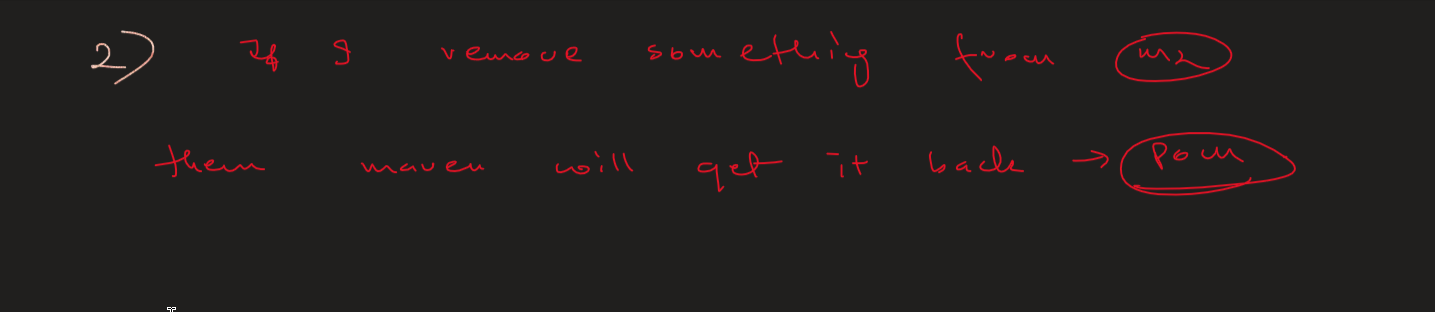 2) If I remove something from m2
then maven will get it back → pom